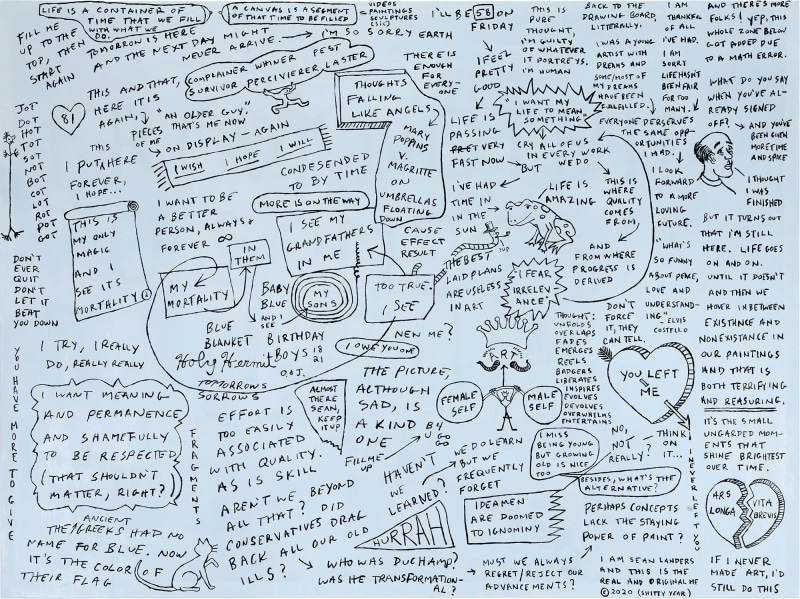 LIFE IS A CONTAINER OF
TIME THAT WE FILL
WITH WHAT WE
DO.
A CANVAS IS A SEGMENT
OF THAT TIME TO BE FILLED
VIDEOS
PAINTINGS
SCULPTURES
(SIC)
I'LL BE 58 ON
FRIDAY
FILL ME
UP TO THE
TOP, THEN
START
AGAIN
TOMORROW IS HERE
AND THE NEXT DAY MIGHT
NEVER ARRIVE.
I'M SO SORRY EARTH
I FEEL
PRETTY
GOOD
THIS IS
PURE
THOUGHT,
I'M GUILTY
OF WHATEVER
IT PORTREYS.
I'M HUMAN
BACK TO THE
DRAWING BOARD,
LITTERALLY.
I WAS A YOUNG
ARTIST WITH
DREAMS AND
SOME/MOST OF
MY DREAMS
HAVE BEEN
FULFILLED.
I AM
THANKFUL
OF ALL
I'VE HAD.
I AM
SORRY
LIFE HASN'T
BEEN FAIR
FOR TOO
MANY.
AND THERE'S MORE
FOLKS! YEP, THIS
WHOLE ZONE BELOW
GOT ADDED DUE
TO A MATH ERROR.
WHAT DO YOU SAY
WHEN YOU'VE AL-
READY SIGNED
OFF?
AND YOU'VE
BEEN GIVEN
MORE TIME
AND SPACE
I THOUGHT
I WAS
FINISHED
BUT IT TURNS OUT
THAT I'M STILL
HERE. LIFE GOES
ON AND ON.
UNTIL IT DOESN'T
AND THEN WE
HOVER IN BETWEEN
EXISTENCE AND
NONEXISTANCE IN
OUR PAINTINGS
AND THAT IS
BOTH TERRIFYING
AND REASURING.
IT'S THE SMALL
UNGARDED MOM-
ENTS THAT
SHINE BRIGHTEST
OVER TIME.
ARS
LONGA
VITA
BREVIS
IF I NEVER
MADE ART, I'D
STILL DO THIS
THIS AND THAT,
HERE IT IS
AGAIN,
COMPLAINER WHINER PEST
SURVIVOR PERCIVIERER LASTER
PIECES
OF ME
"AN OLDER GUY,"
THAT'S ME NOW
ON DISPLAY - AGAIN
JOT
DOT
HOT
TOT
SOT
NOT
BOT
COT
LOT
ROT
POT
GOT
81
THIS
I PUT A HERE
FOREVER,
I HOPE...
I WISH I HOPE I WILL
CONDESENDED
TO BY TIME
THERE IS
ENOUGH
FOR EVERY-
ONE
THOUGHTS
FALLING
LIKE ANGELS,
MARY
POPPINS
V.
MAGRITTE
ON
UMBRELLAS
FLOATING
DOWN
"I WANT MY
LIFE TO MEAN
SOMETHING"
CRY ALL OF US
IN EVERY WORK
WE DO
LIFE IS
PASSING
VERY
FAST NOW
BUT
EVERYONE DERSERVES
THE SAME OPP-
ORTUNITIES
I HAD.
I LOOK
FORWARD
TO A MORE
LOVING
FUTURE.
"WHAT'S
SO FUNNY
ABOUT PEACE,
LOVE AND
UNDERSTAND-
ING"
ELVIS
COSTELLO
THIS IS
WHERE
QUALITY
COMES
FROM,
AND
FROM WHERE
PROGRESS IS
DERIVED
I'VE HAD
TIME IN
IN THE
SUN
LIFE IS
AMAZING
THIS IS
MY ONLY
MAGIC
AND I
SEE ITS
MORTALITY
I WANT TO BE
A BETTER
PERSON, ALWAYS &
FOREVER ∞
MORE IS ON THE WAY
I SEE MY
GRANDFATHERS
IN ME
IN
THEM
MY
MORTALITY
BABY
BLUE
AND I
SEE
MY
SONS
CAUSE
EFFECT
RESULT
TOO TRUE.
I SEE
NEN ME?
YUP
THE BEST
LAID PLANS
ARE USELESS
IN ART
I FEAR
IRRELEV
ANCE
DON'T
EVER
QUIT
DON'T
LET IT
BEAT
YOU DOWN
BLUE
BLANKET
BIRTHDAY
BOYS
18
21
O.O.J.
Holy Hermit
TOMORROWS
SORROWS
I OWE YOU ONE
YOU HAVE MORE TO GIVE
I TRY, I REALLY
DO, REALLY REALLY
I WANT MEANING
AND PERMANENCE
AND SHAMEFULLY
TO BE RESPECTED
(THAT SHOULDN'T
MATTER, RIGHT?)
FRAGMENTS
ALMOST
THERE
SEAN,
KEEP
IT UP
THE PICTURE,
ALTHOUGH
SAD, IS
A KIND
ONE
FILL ME
UP
B4
U GO
GO
THOUGHT:
UNFOLDS
OVERLAPS
FADES
EMERGES
REELS
BADGERS
LIBERATES
INSPIRES
EVOLVES
DEVOLVES
OVERWHELMS
ENTERTAINS
DON'T
FORCE
IT, THEY
CAN TELL.
ART
FEMALE
SELF
MALE
SELF
YOU LEFT
ME
I NEVER LEFT YOU
NO,
NOT
REALLY?
THINK
ON
IT...
EFFORT IS
TOO EASILY
ASSOCIATED
WITH QUALITY.
AS IS SKILL
AREN'T WE BEYOND
ALL THAT? DID
CONSERVATIVES DRAG
BACK ALL OUR OLD
ILLS?
HAVEN'T
WE
LEARNED?
WE DO LEARN
BUT WE
FREQUENTLY
FORGET
I MISS
BEING YOUNG
BUT GROWING
OLD IS NICE
TOO
BESIDES, WHAT'S THE
ALTERNATIVE?
IDEAMEN
ARE DOOMED
TO IGNOMINY
PERHAPS CONCEPTS
LACK THE STAYING
POWER OF PAINT?
HURRAH
ANCIENT
THE GREEKS HAD NO
NAME FOR BLUE. NOW
IT'S THE COLOR OF
THEIR FLAG
WHO WAS DUCHAMP?
WAS HE TRANSFORMATION-
AL?
MUST WE ALWAYS
REGRET/REJECT OUR
ADVANCEMENTS?
I AM SEAN LANDERS
AND THIS IS THE
REAL AND ORIGINAL ME
©2020 (SHITTY YEAR)